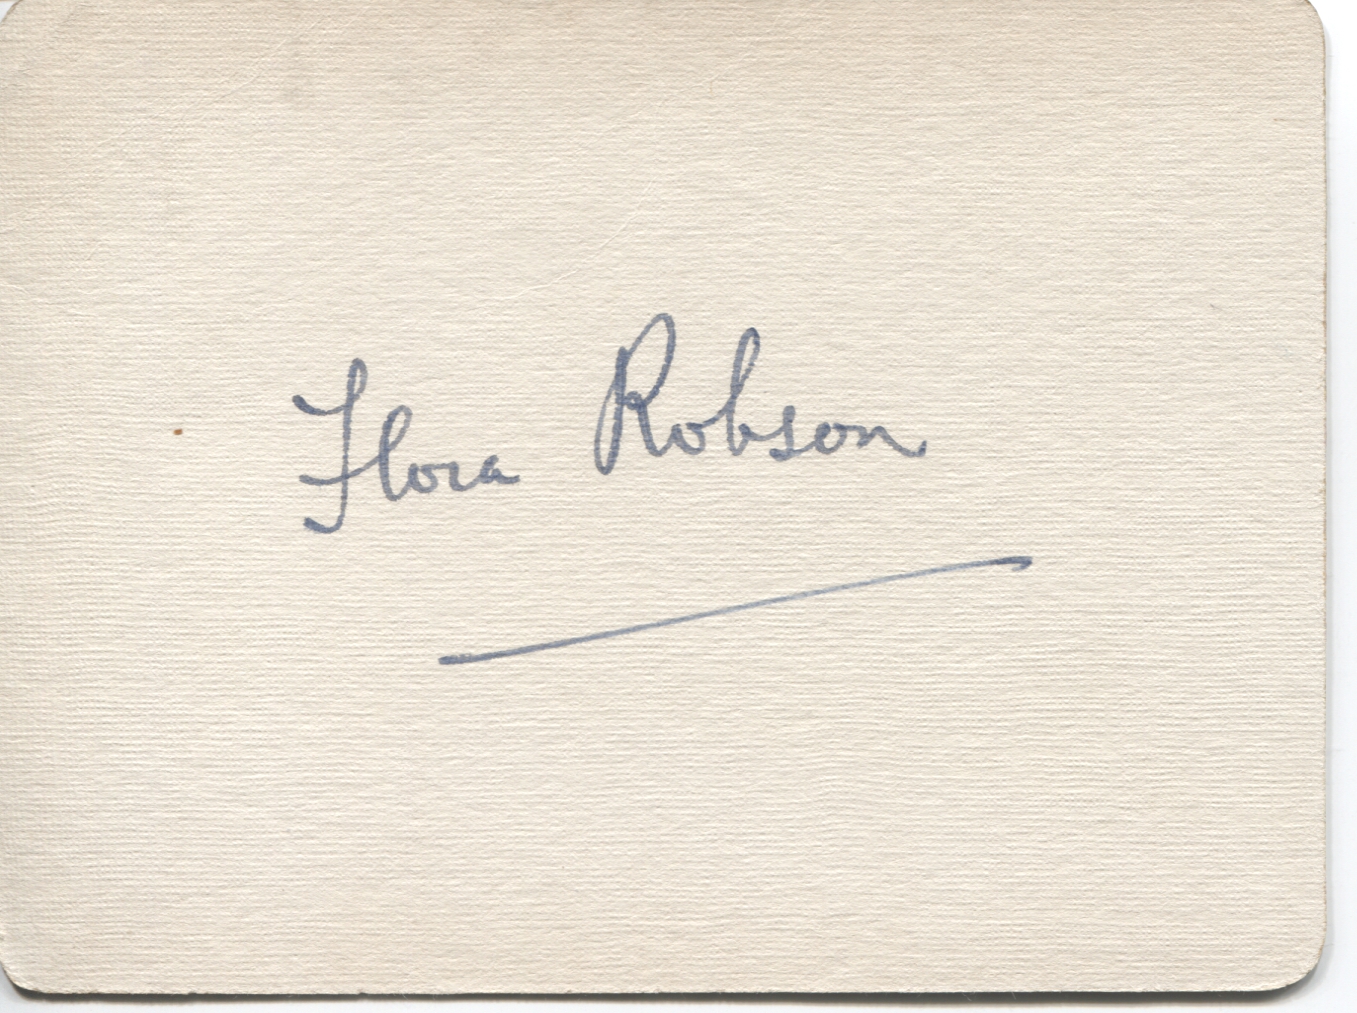 Flora Robson